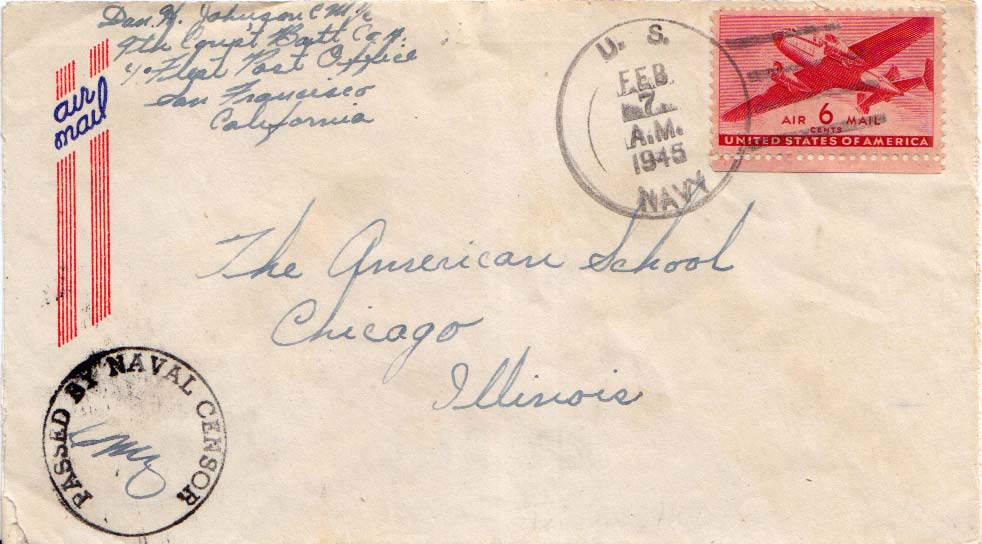 Dan. H. Johnson C M 1/c
9th Const Batt Co A.
c/o Fleet Post Office
San Francisco
California
air
mail
U. S.
FEB
7
A.M.
1945
NAVY
AIR 6 MAIL
CENTS
UNITED STATES OF AMERICA
The American School
Chicago
Illinois
PASSED BY NAVAL CENSOR